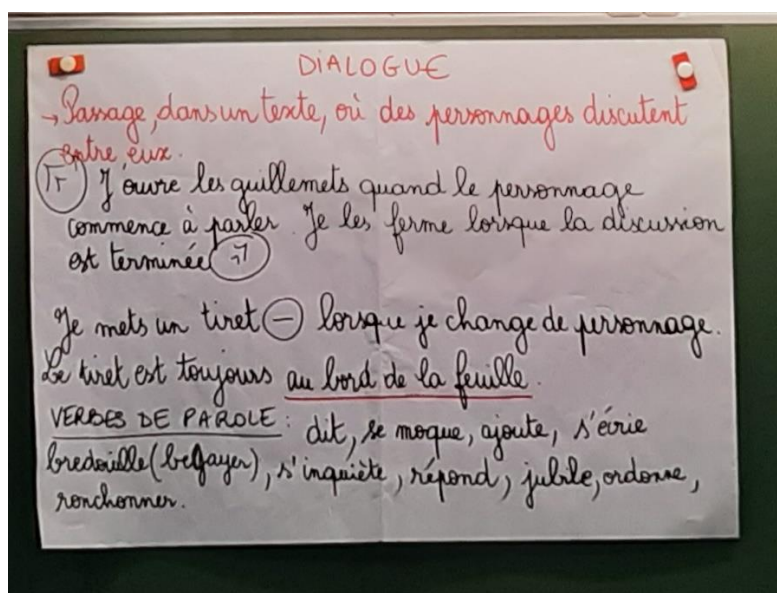 DIALOGUE
→ Passage, dans un texte, où des personnages discutent
entre eux.
J'ouvre les guillemets quand le personnage
commence à parler. Je les ferme lorsque la discussion
est terminée
Je mets un tiret – lorsque je change de personnage.
Le tiret est toujours au bord de la feuille.
VERBES DE PAROLE : dit, se moque, ajoute, s'écrie
bredouille (begayer), s'inquiète, répond, jubile, ordonne,
ronchonner.